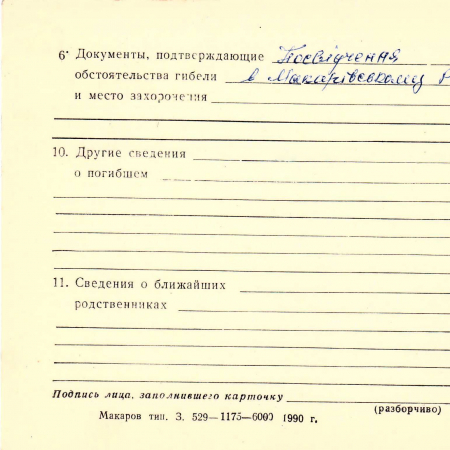 6· Документы, подтверждающие Посвідчення
обстоятельства гибели в Макарівському Р
и место захоронения
10. Другие сведения
о погибшем
11. Сведения о ближайших
родственниках
Подпись лица, заполнившего карточку
(разборчиво)
Макаров тип. З. 529—1175—6000 1990 г.